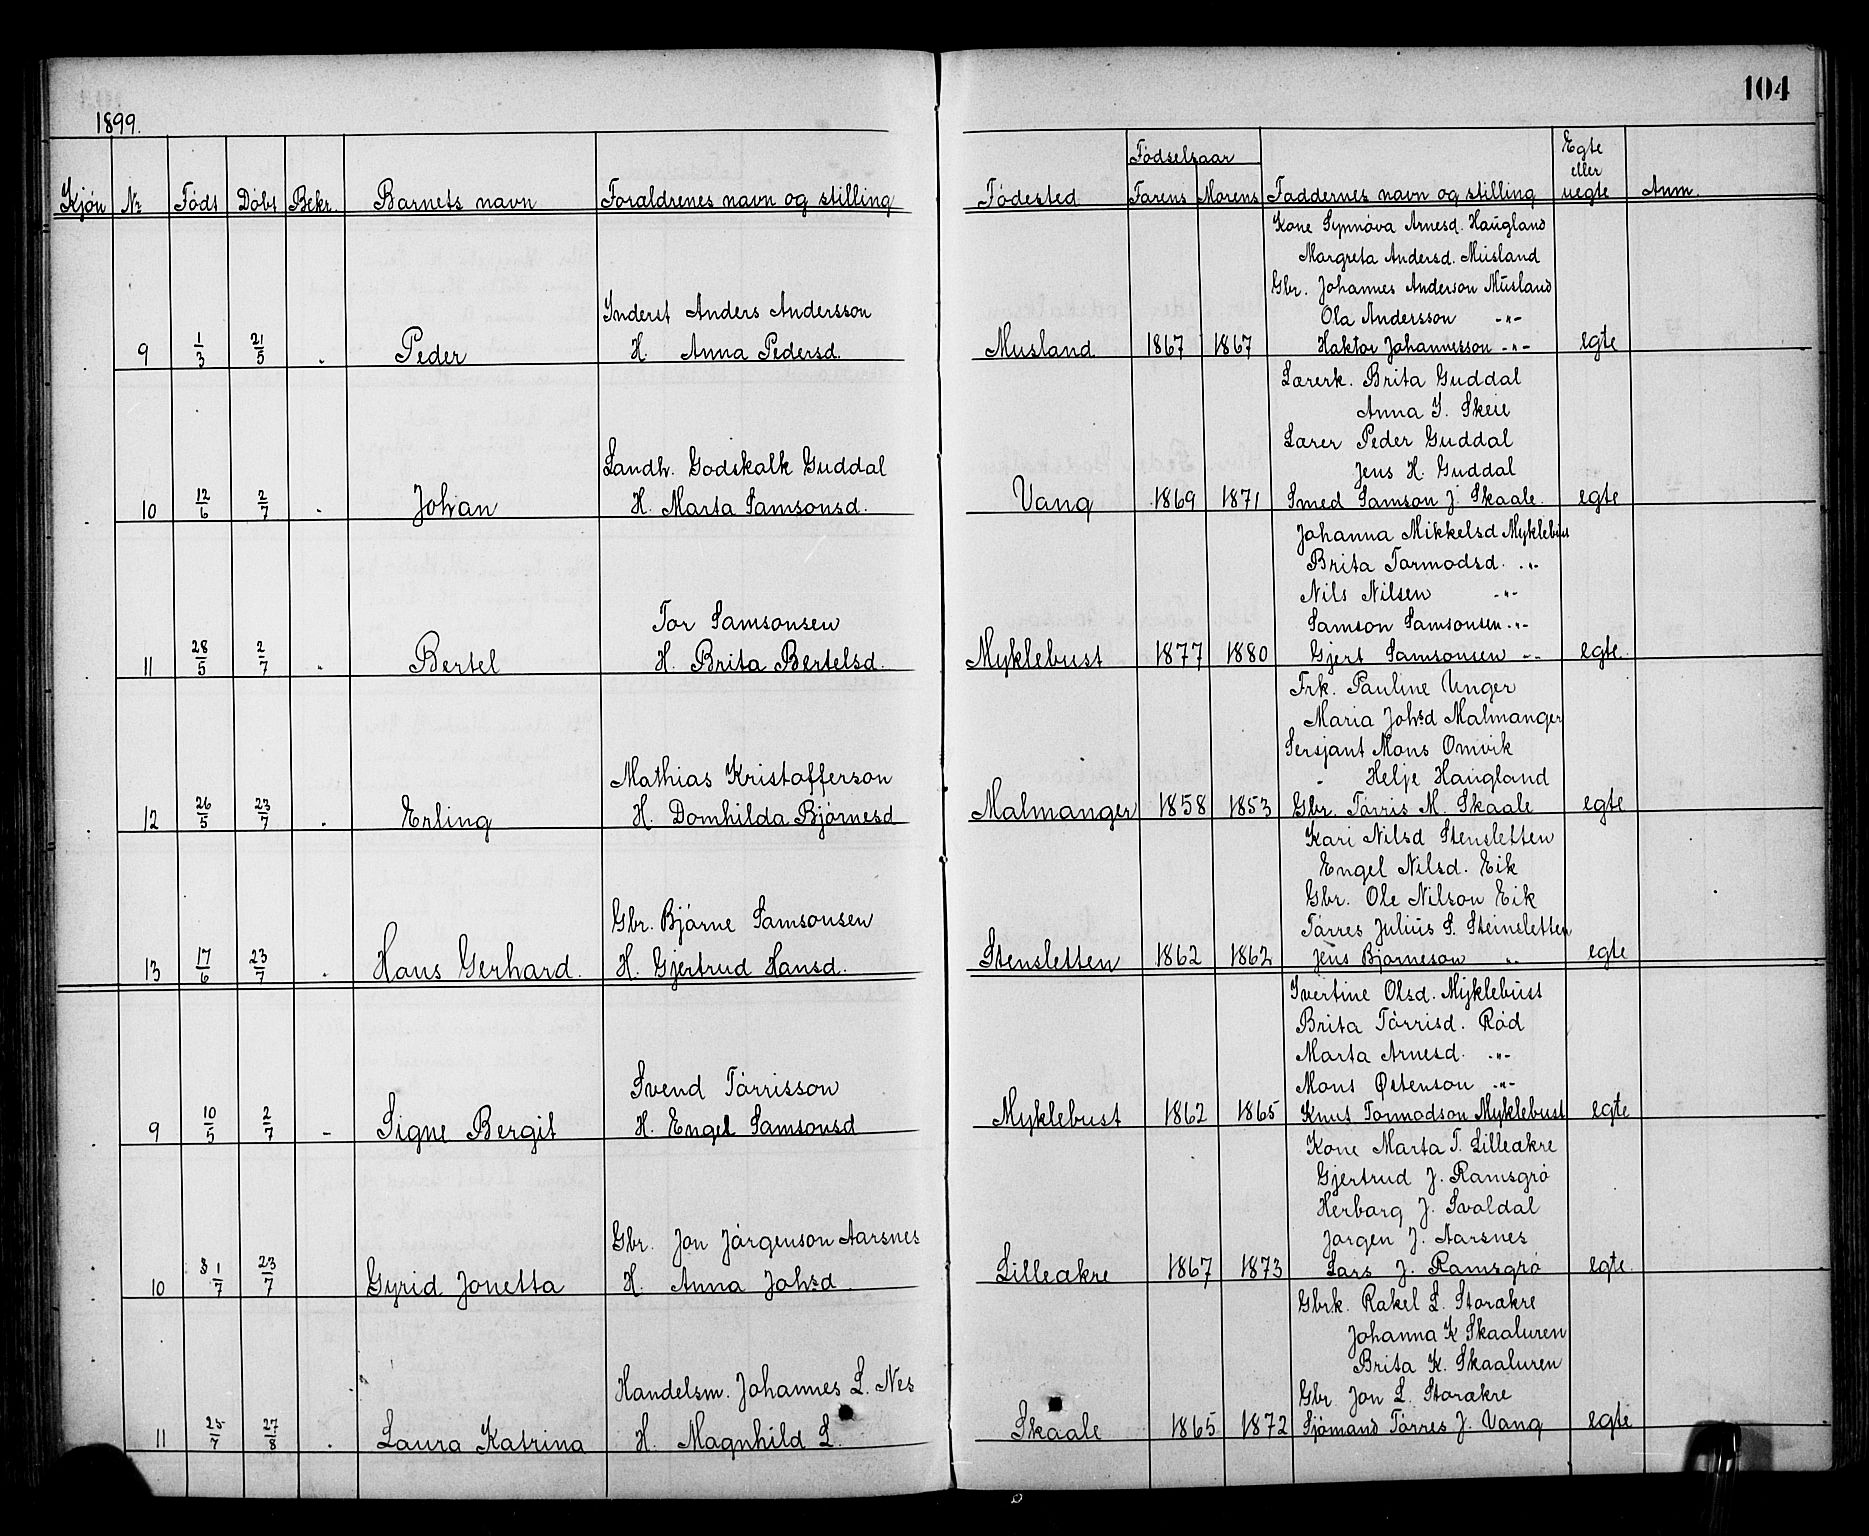 104
1899.
Kjøn Nr Født Døbt Bekr. Barnets navn Foraldrenes navn og stilling Fødested Fødselsaar Farens Morens Faddernes navn og stilling Egte eller uegte Anm.
Kone Synnøva Arnesd. Haugland
Margreta Andersd. Musland
Gbr. Johannes Anderson Musland
Inderst Anders Andersson Ola Andersson -"-
9 1/3 21/5 . Peder H. Anna Pedersd. Musland 1867 1867 Haktor Johannesson -"- egte
Lærerk. Brita Guddal
Anna I. Skeie
Lærer Peder Guddal
Landh. Godskalk Guddal Jens H. Guddal
10 12/6 2/7 . Johan H. Marta Samsonsd. Vang 1869 1871 Smed Samson J. Skaale. egte
Johanna Mikkelsd Myklebust
Brita Tormodsd. -"-
Nils Nilsen -"-
Tor Samsonsen Samson Samsonsen -"-
11 28/5 2/7 . Bertel H. Brita Bertelsd. Myklebust 1877 1880 Gjert Samsonsen -"- egte.
Frk. Pauline Unger
Maria Johsd Malmanger
Sersjant Mons Omvik
Mathias Kristofferson - Helje Haugland
12 26/5 23/7 . Erling H. Domhilda Bjørnesd Malmanger 1858 1853 Gbr. Tørris M. Skaale egte
Kari Nilsd Stensletten
Engel Nilsd. Eik
Gbr. Ole Nilson Eik
Gbr. Bjørne Samsonsen Tørres Julius S. Steinsletten
13 17/6 23/7 . Hans Gerhard. H. Gjertrud Hansd. Stensletten 1862 1862 Jens Bjørneson -"- egte
Ivertine Olsd. Myklebust
Brita Tørrisd. Rød
Marta Arnesd. -"-
Svend Tørrisson Mons Østenson -"-
9 10/5 2/7 - Signe Bergit H. Engel Samsonsd Myklebust 1862 1865 Knut Tormodson Myklebust egte
Kone Marta T. Lilleakre
Gjertrud J. Ramsgrø
Herborg J. Svoldal
Gbr. Jon Jørgenson Aarsnes Jørgen J. Aarsnes
10 1/7 23/7 Gyrid Jonetta H. Anna Johsd. Lilleakre 1867 1873 Lars J. Ramsgrø egte.
Gbrk. Rakel L. Storakre
Johanna K Skaaluren
Brita K. Skaaluren
Handelsm. Johannes L. Nes Gbr Jon L. Storakre
11 /7 27/8 . Laura Katrina H. Magnhild L. Skaale 1865 1872 Sjømand Tørres J. Vang egte